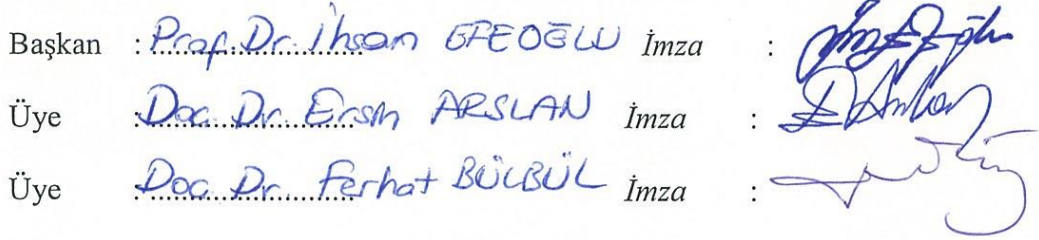 Başkan : Prof. Dr. İhsan EFEOĞLU İmza :
Üye : Doç. Dr. Ersin ARSLAN İmza :
Üye : Doç. Dr. Ferhat BÜLBÜL İmza :